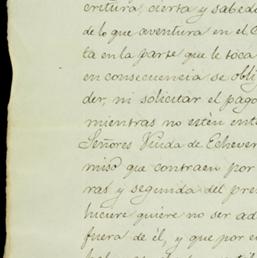 critura, cierta y sabed
de lo que aventura en el C
ta en la parte que le toca
en consecuencia se obli
der, ni solicitar el pago
mientras no esten ent
Señores Viuda de Echever
miso que contraen por
ras y segunda del pre
hiciere quiere no ser ad
fuera de él, y que por e